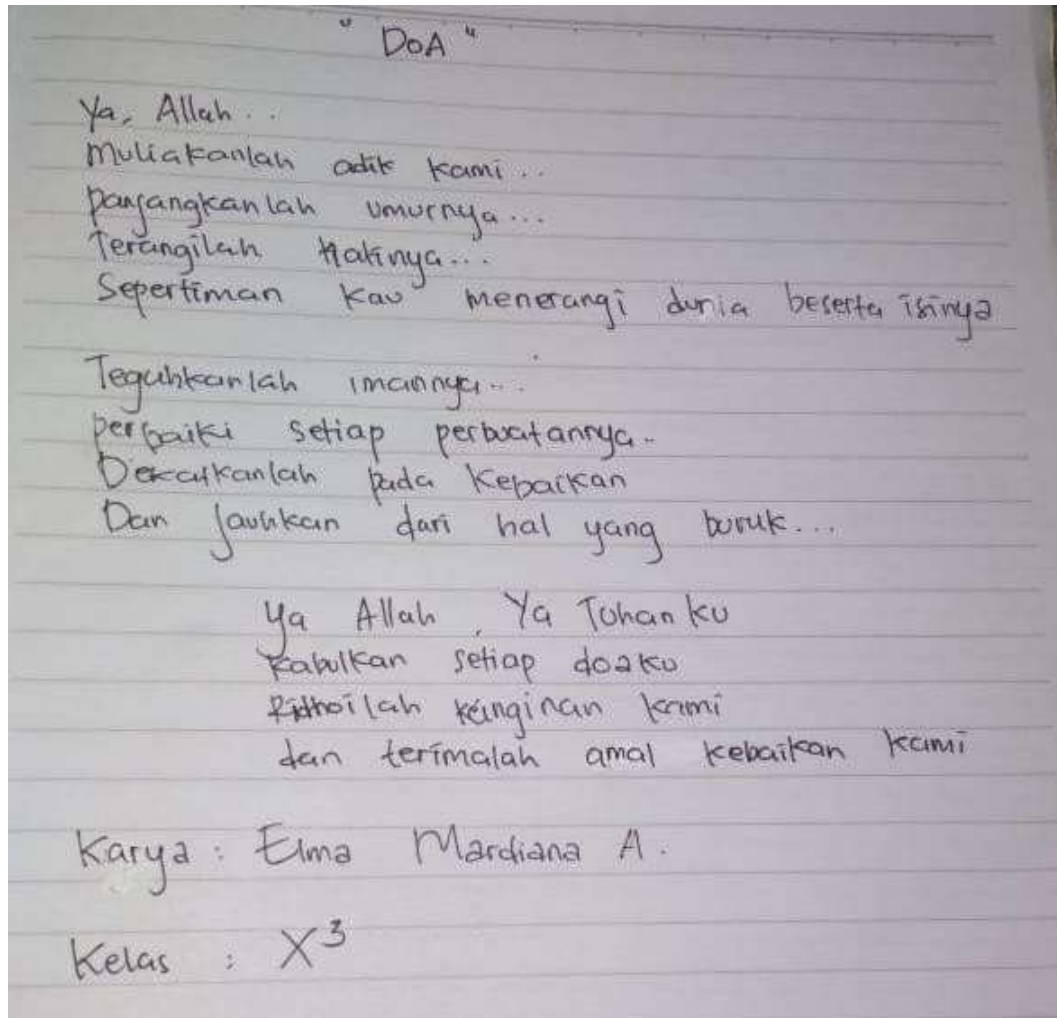 " DoA "
Ya, Allah . .
Muliakanlah adik kami . .
panjangkanlah umurnya ...
Terangilah Hatinya ...
Sepertiman Kau menerangi dunia beserta isinya
Teguhkanlah imannya ...
perbaiki setiap perbuatannya ..
Dekatkanlah pada Kebaikan
Dan jauhkan dari hal yang buruk ...
Ya Allah, Ya Tuhan ku
Kabulkan setiap doaku
Ridhoilah keinginan kami
dan terimalah amal kebaikan kami
Karya : Elma Mardiana A.
Kelas : X³